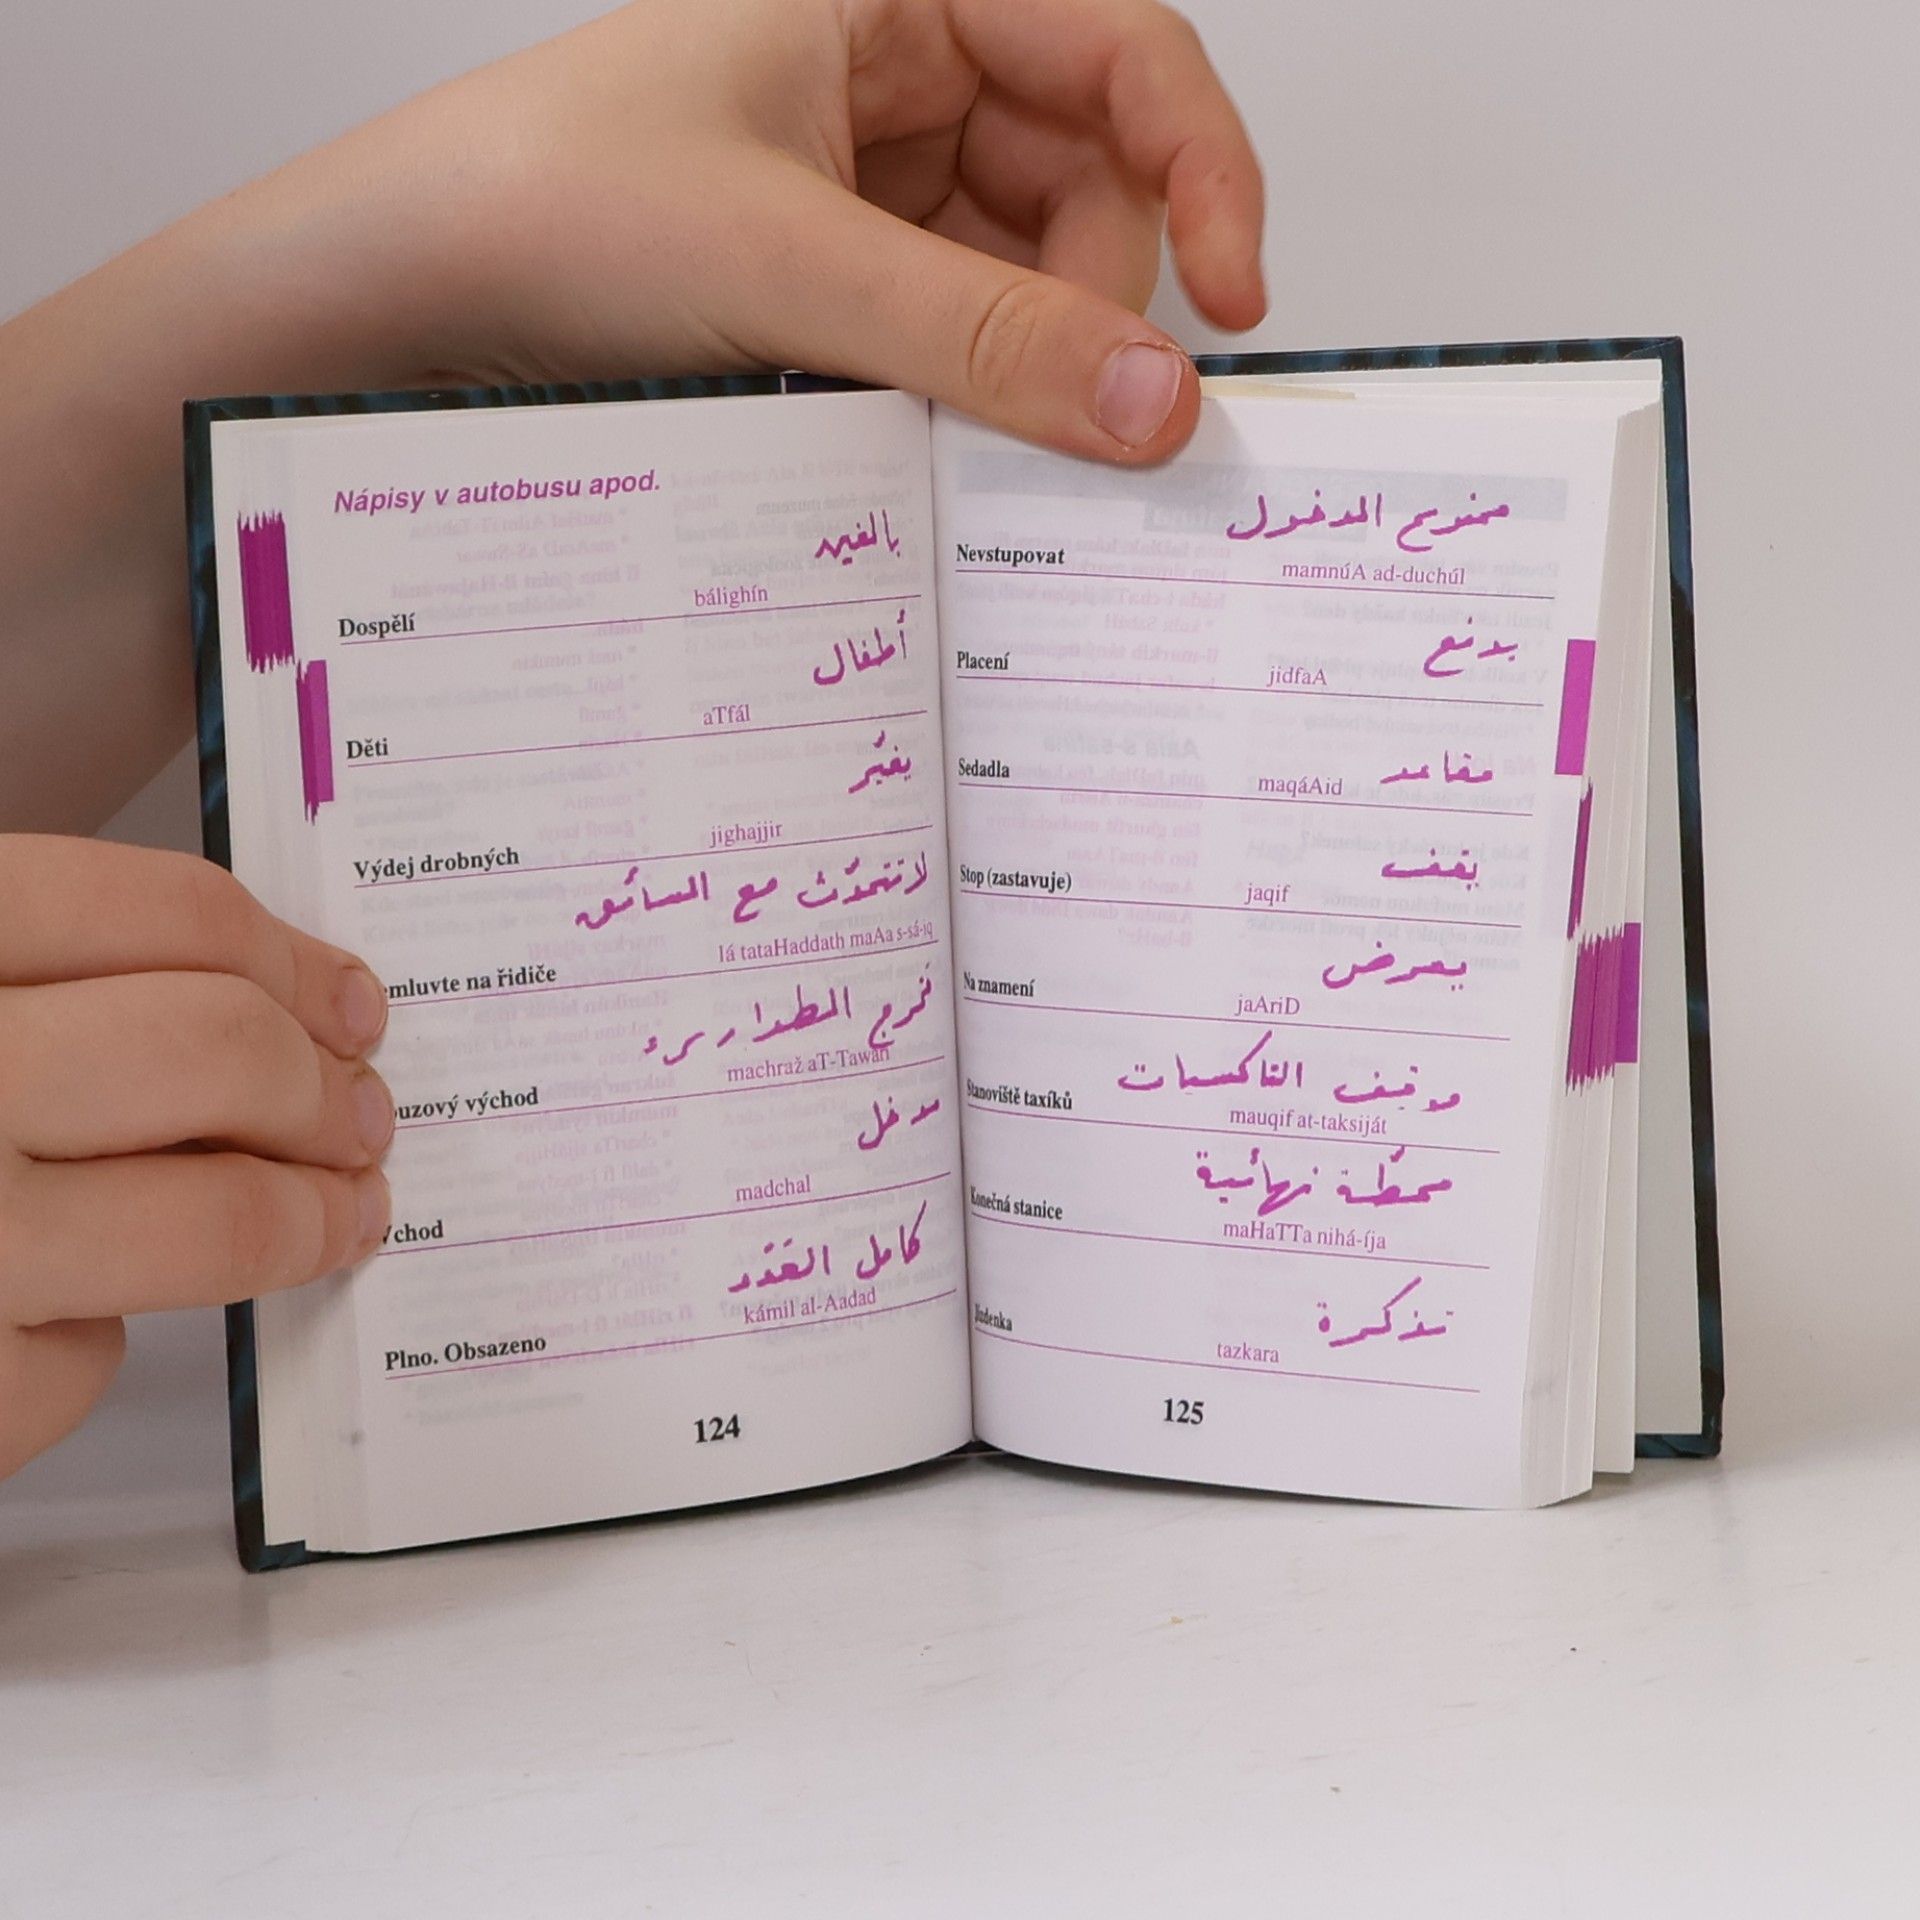 Nápisy v autobusu apod.
بالغين
bálighín
Dospělí
أطفال
aTfál
Děti
يغيّر
jighajjir
Výdej drobných
لا تتحدّث مع السائق
lá tataHaddath maAa s-sá-iq
mluvte na řidiče
الطوارئ
machraž aT-Tawári
uzový východ
مدخل
madchal
Vchod
كامل العَدَد
kámil al-Aadad
Plno. Obsazeno
124
ممنوع الدخول
Nevstupovat
mamnúA ad-duchúl
يدفع
Placení
jidfaA
مقاعد
Sedadla
maqáAid
يقف
Stop (zastavuje)
jaqif
يعرض
Na znamení
jaAriD
موقف التاكسيات
Stanoviště taxíků
mauqif at-taksiját
محطّة نهائية
Konečná stanice
maHaTTa nihá-íja
تذكرة
Jízdenka
tazkara
125